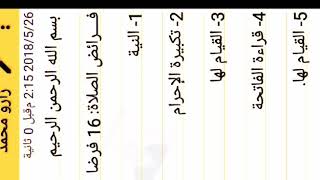 رازو محمد
2018/5/26 2:15 م قبل 0 ثانية
بسم الله الرحمن الرحيم
فـرائض الصلاة: 16 فرضا
1- النية
2- تكبيرة الإحرام
3- القيام لها
4- قراءة الفاتحة
5- القيام لها.